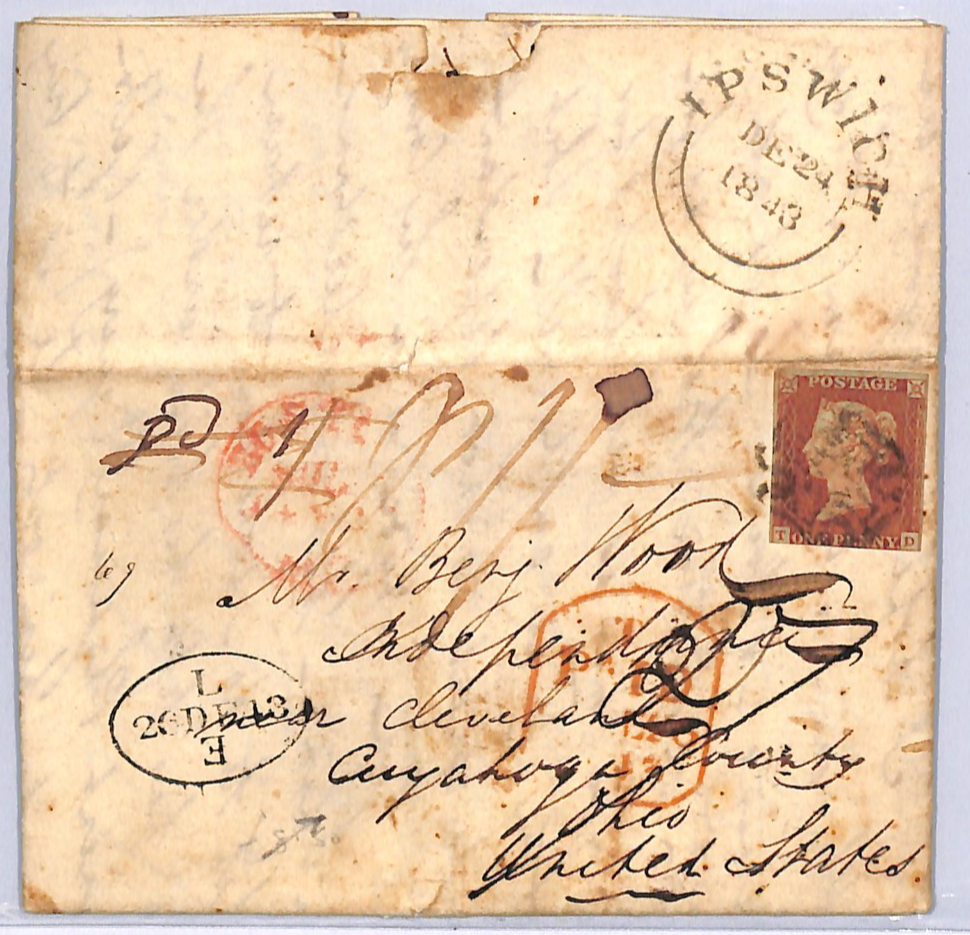 IPSWICH
DE 24
1843
POSTAGE
T ONE PENNY D
pd 1/
Mr. Benj. Wood
Independence
near Cleveland
Cuyahoga County
Ohio
United States
L
26 DE 43
E